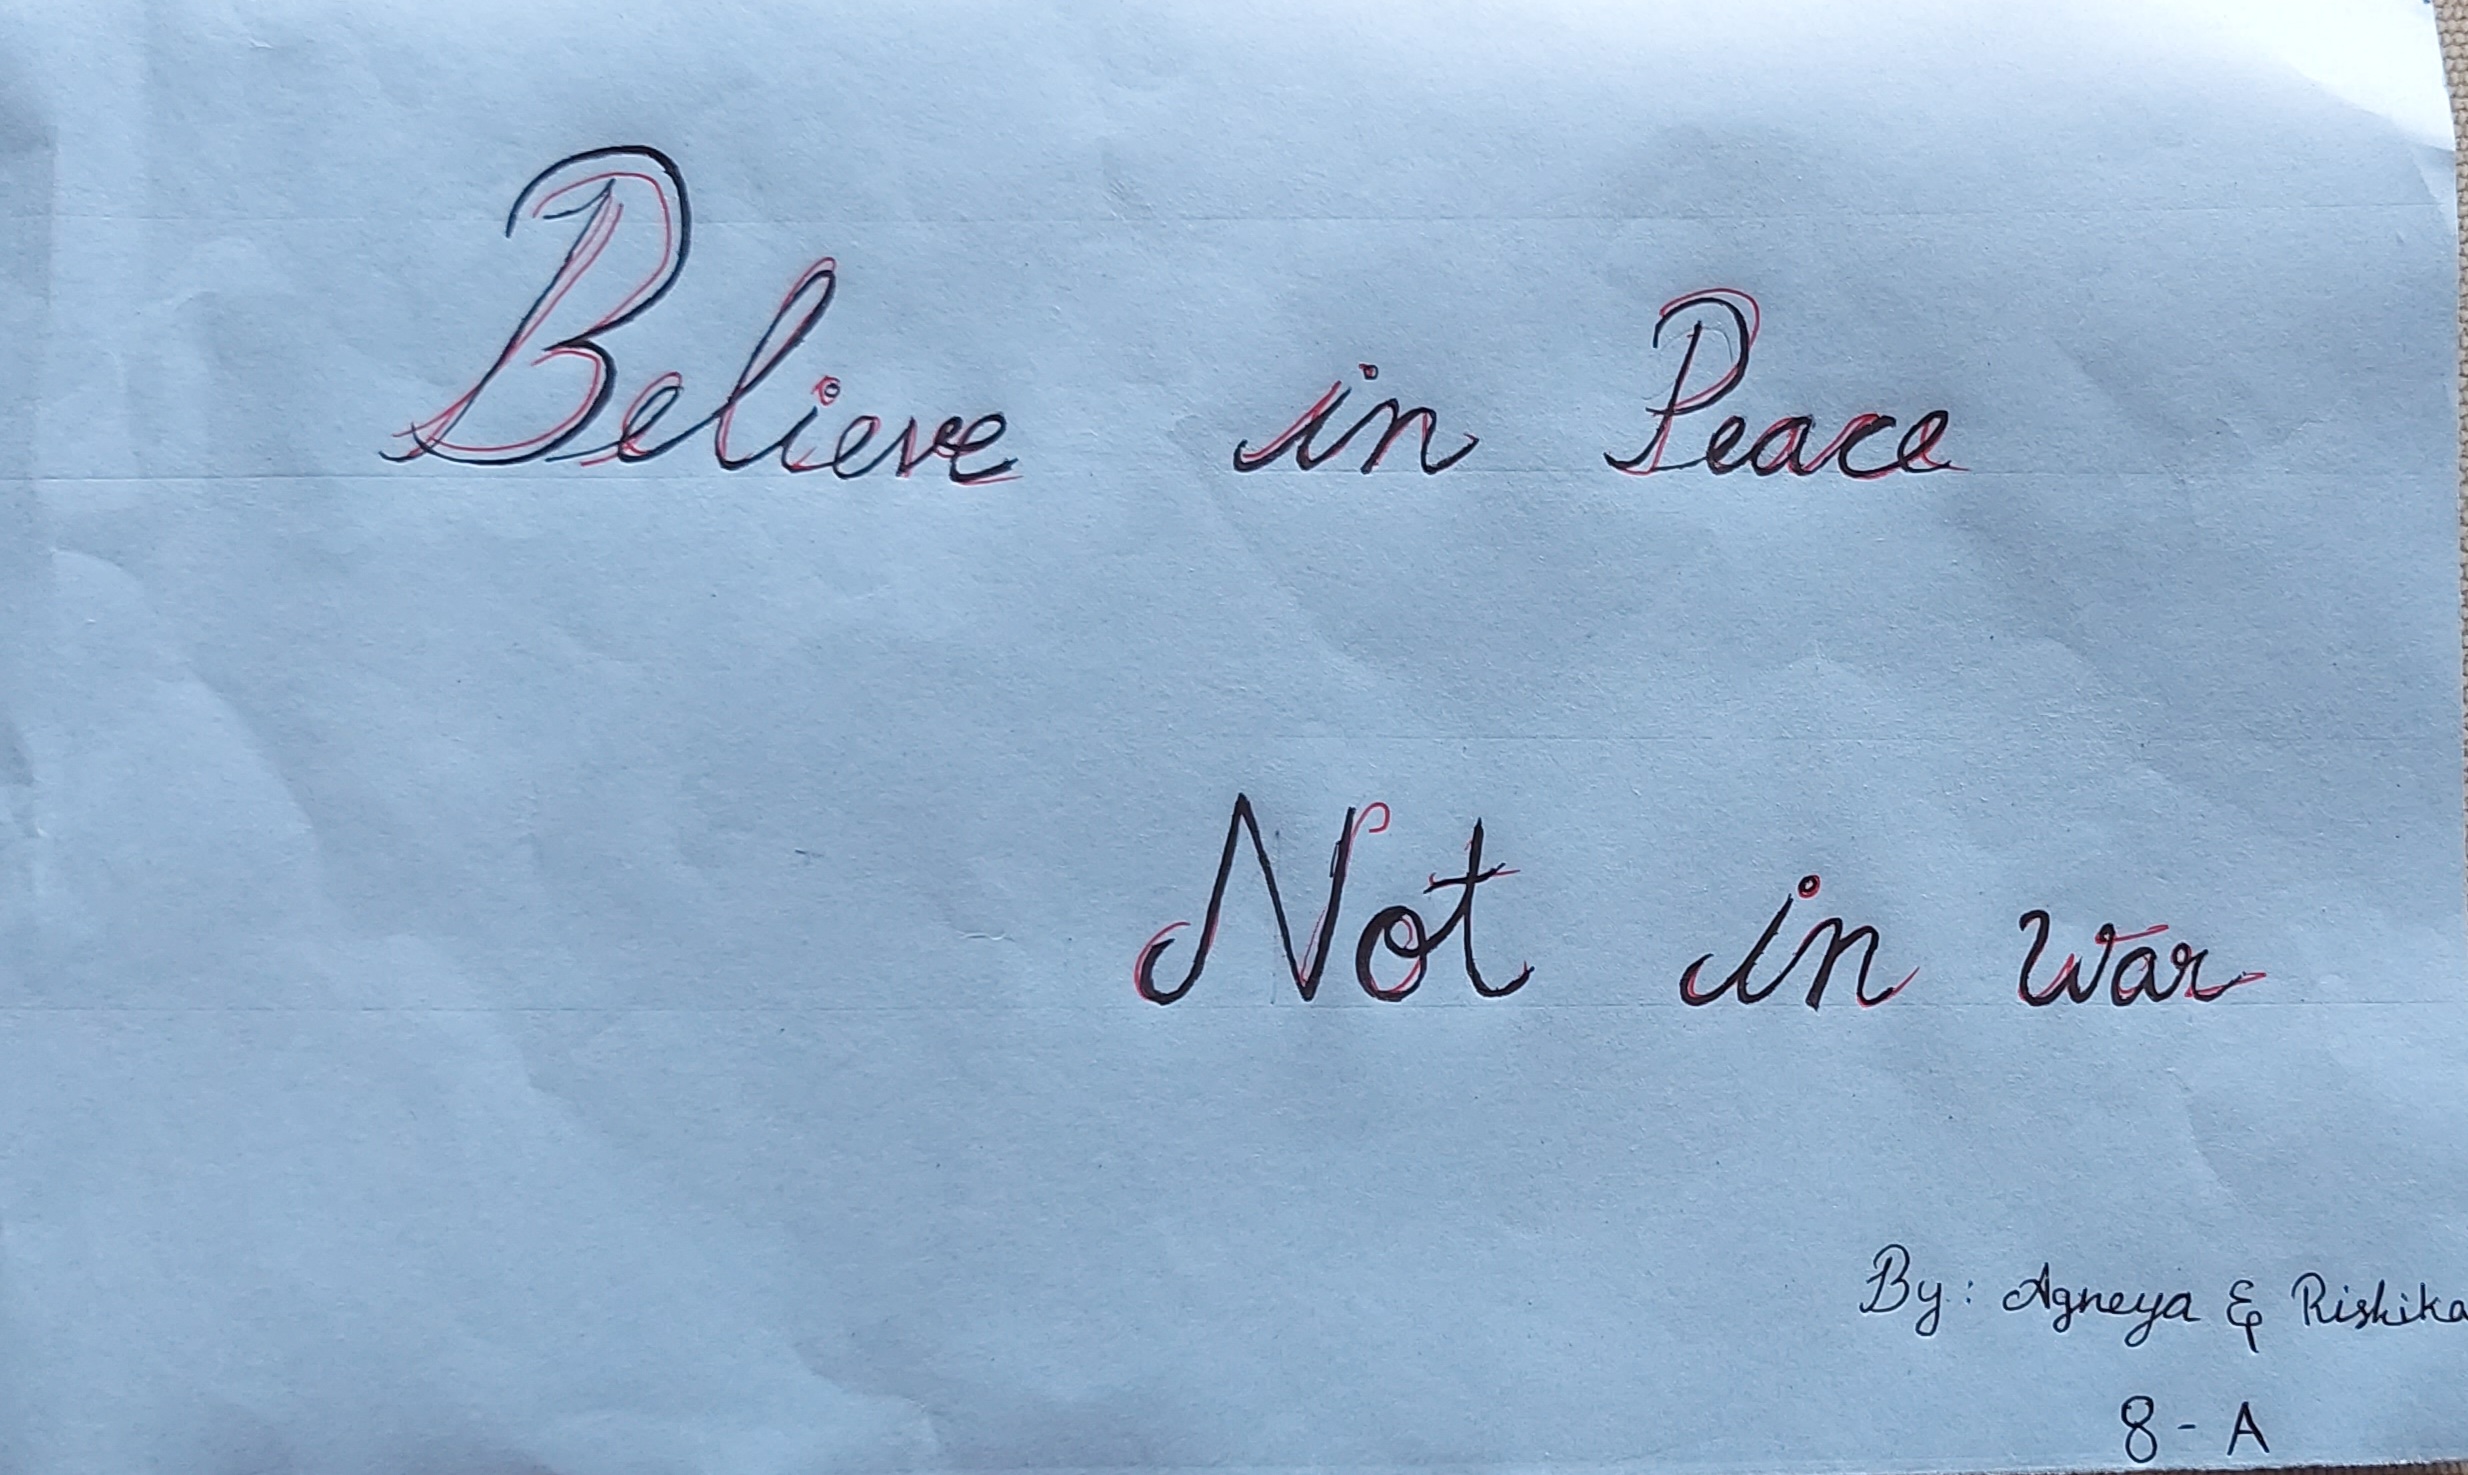 Believe in Peace
Not in war
By: Agneya & Rishika
8 - A